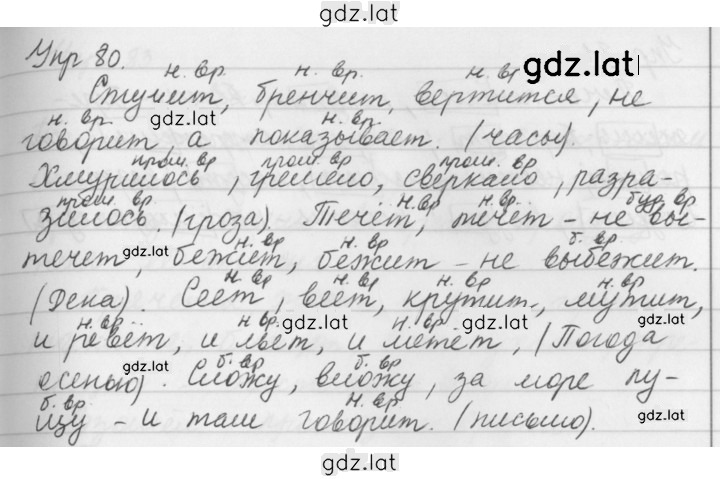 gdz.lat
Упр 80.
н. вр. н. вр. н. вр
gdz.lat
Стучит, бренчит, вертится, не
н. вр. gdz.lat н. вр.
говорит, а показывает. (часы).
прош. вр прош. вр прош. вр
Хмурилось, гремело, сверкало, разра-
прош. вр. н. вр н. вр. буд. вр
зилось. (гроза). Течёт, течёт - не вы-
gdz.lat н. вр н. вр б. вр
течет, бежит, бежит - не выбежит.
н. вр н. вр н. вр н. вр
(река). Сеет, веет, крутит, мутит,
н. вр. н вр. н. вр gdz.lat gdz.lat
и ревёт, и льёт, и метёт, (Погода
gdz.lat б. вр б. вр
осенью). Сложу, вложу, за море пу-
б. вр н. вр
щу - и там говорит. (письмо).
gdz.lat
gdz.lat